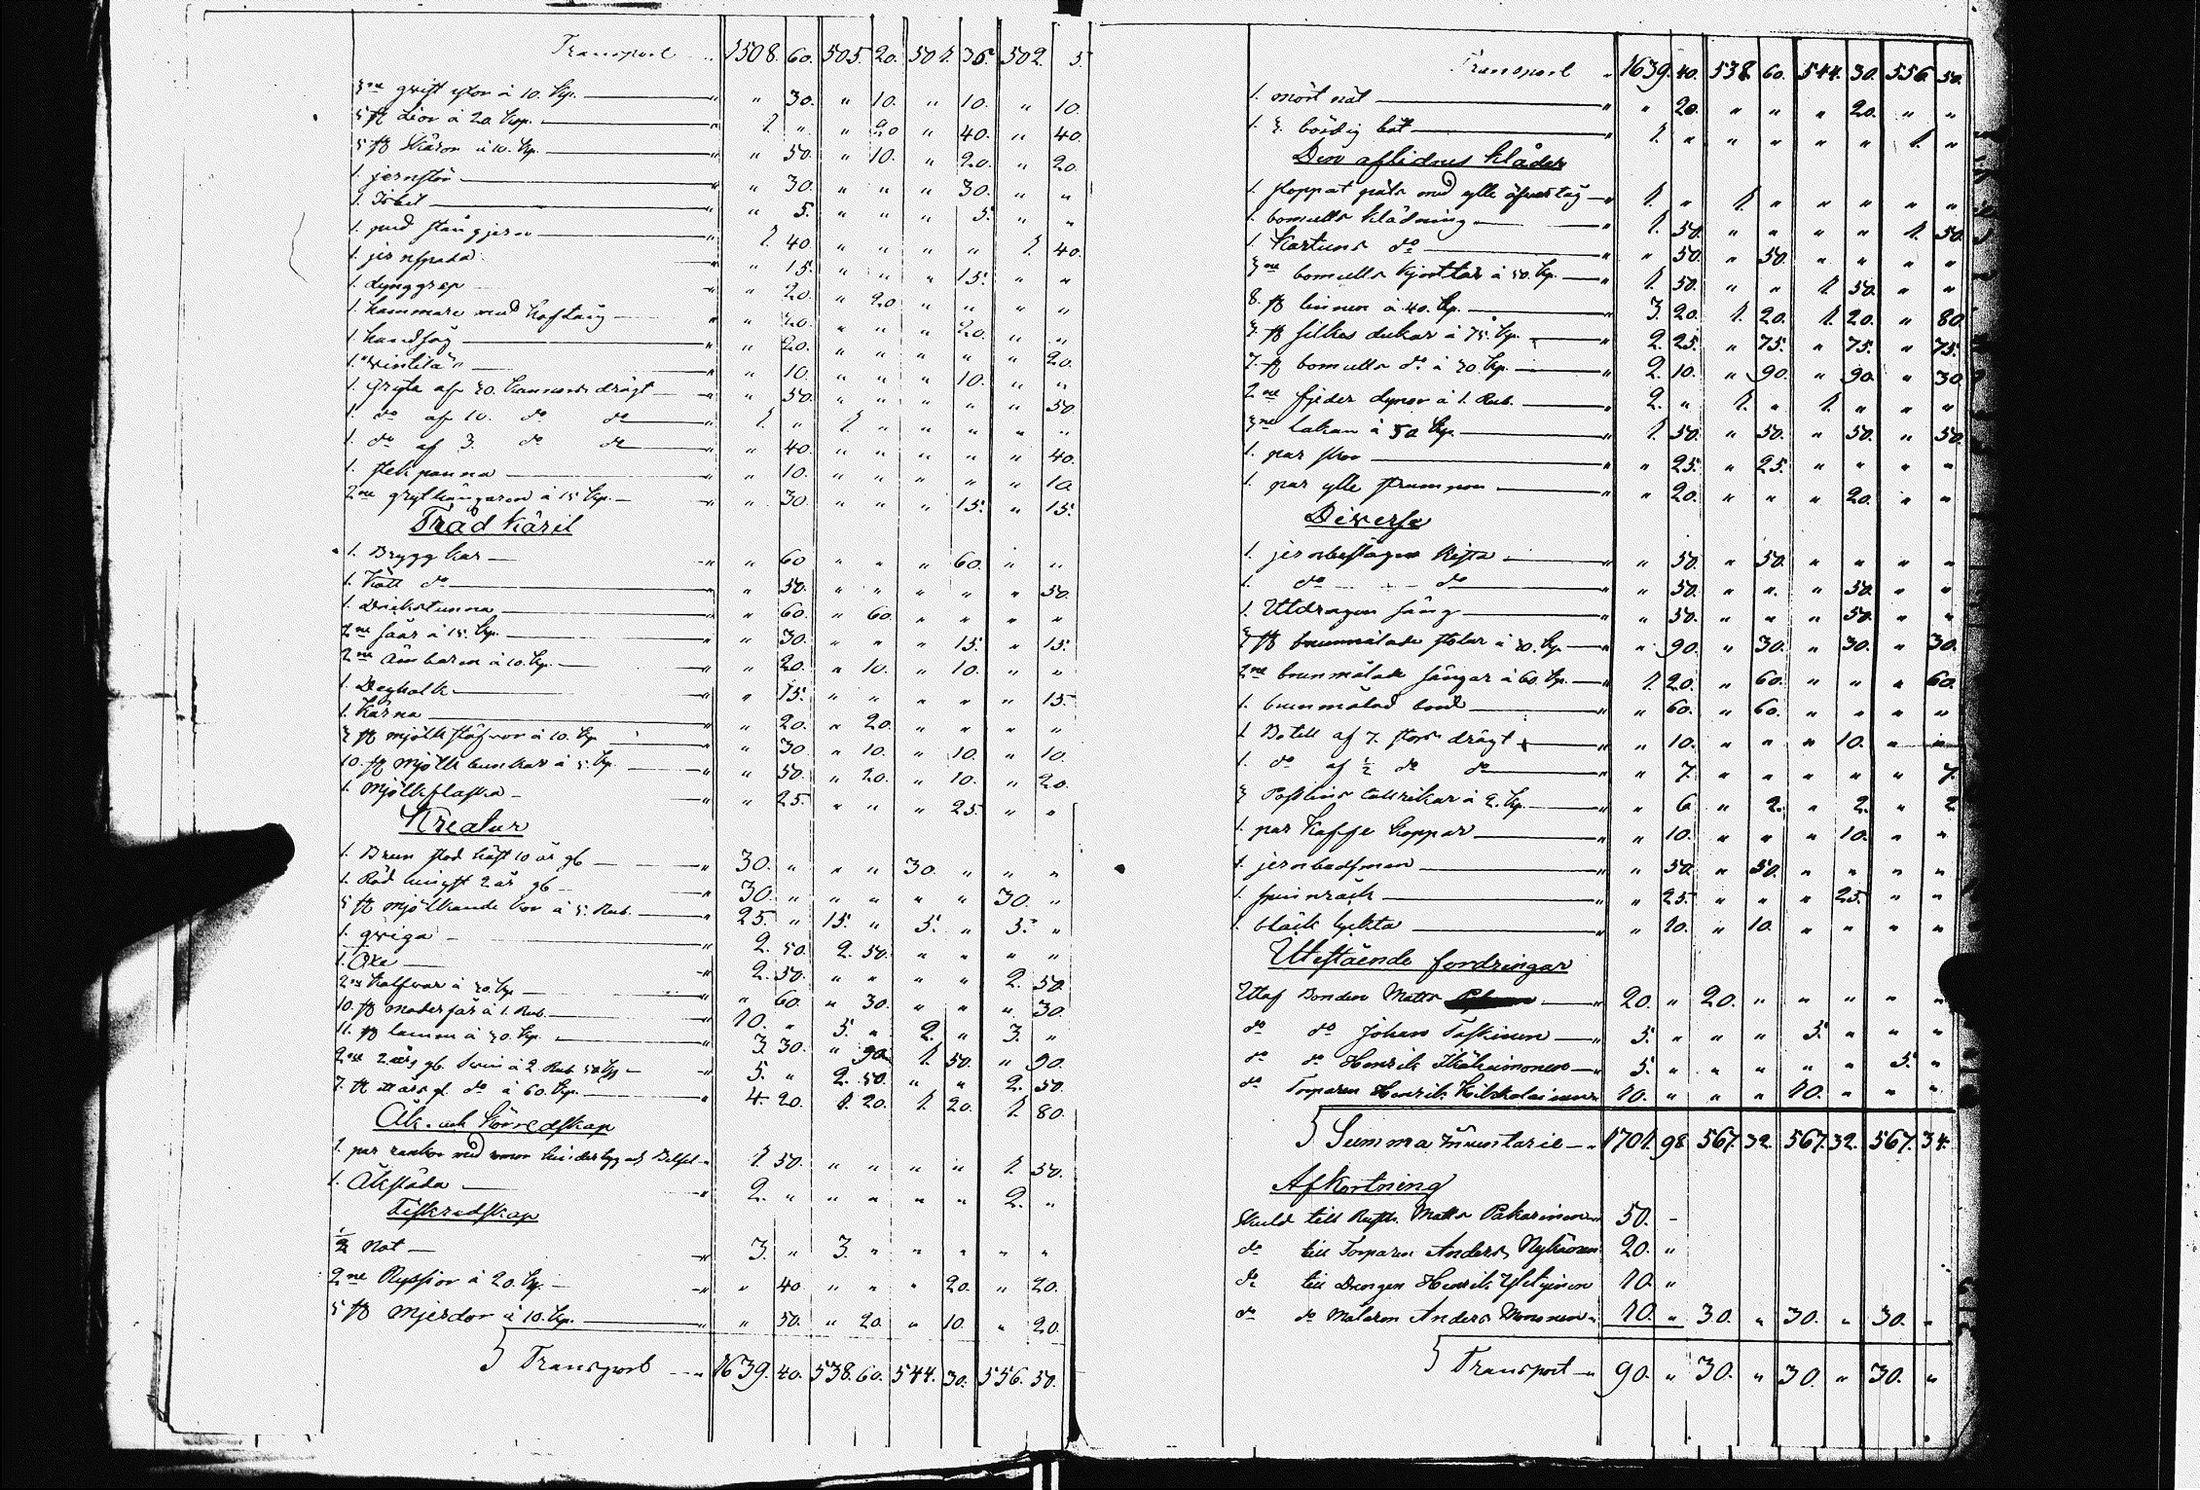 Transport 1508. 60. 505. 20. 501. 35. 502. 5.
3ne grift ytor à 10. Kp. " 30. " 10. " 10. " 10.
5 st Lior à 20. Kop. 1. " " 20 " 40. " 40.
5 st Skäror à 10. Kp. " 50. " 10. " 20. " 20.
1. jernstör " 30. " " " 30. " "
1. Isbil " 5. " " " 5. " "
1. pud stångjern 1. 40. " " " " 1. 40.
1. jernspada " 15. " " " 15. " "
1. dynggrep " 20. " 20 " " " "
1. hammare med hoftång " 20. " " " 20. " "
1. handsåg " 20. " " " " " 20.
1. " 10. " " " 10. " "
1. gryta af 20. kannors drägt " 50. " " " " " 50.
1. do af 10. do do 1. " 1. " " " " "
1. do af 3. do do " 40. " " " " " 40.
1. stekpanna " 10. " " " " " 10.
2ne grythängaren à 15 Kp. " 30. " " " 15. " 15.
Träd Käril
1. Brygg kar " 60 " " " 60. " "
1. Kått do " 50. " " " " " 50.
1. Drickstunna " 60. " 60. " " " "
2ne såar à 15. Kp. " 30. " " " 15. " 15.
2ne Ämbaren à 10. Kp. " 20. " 10. " 10. " "
1. Degbalk " 15. " " " " " 15.
1. Kärna " 20. " 20. " " " "
3 st mjölkstäfvor à 10. Kp " 30. " 10. " 10. " 10.
10. st mjölk bunkar à 5. Kp. " 50. " 20. " 10. " 20.
1. mjölkflaska " 25. " " " 25. " "
Kreatur
1. Brun stod häst 10 år gl 30. " " " 30. " " "
1. Röd hingst 2 år gl 30. " " " " " 30. "
5 st mjölkande kor à 5. Rub. 25. " 15. " 5. " 5. "
1. qviga 2. 50. 2. 50. " " " "
1. Oxe 2. 50. " " " " 2. 50.
2ne kalfvar à 30. Kp " 60. " 30. " " " 30.
10. st moderfår à 1. Rub. 10. " 5. " 2. " 3. "
11. st lamm à 30. Kp. 3. 30. " 90. 1. 50. " 90.
2ne 2 års gl. Svin à 2 Rub 50 Kp 5. " 2. 50. " " 2. 50.
7. st års gl. do à 60. Kp. 4. 20. 1. 20. 1. 20. 1. 80.
Åk- och Körredskap
1. par rankor med 1. 50. " " " " 1. 50.
1. Åkslåda 2. " " " " " 2. "
Fiskredskap
1/2 Not 3. " 3. " " " " "
2ne Ryssior à 20. Kp. " 40 " " " 20. " 20.
5 st mjerdor à 10. Kp. " 50. " 20. " 10. " 20.
Transport 1639. 40. 538. 60. 544. 30. 556. 50.
Transport 1639. 40. 538. 60. 544. 30. 556 50.
1. mört nät " 20. " " " 20. " "
1. 3. bördig båt 1. " " " " " 1. "
Den aflidnes kläder
1. stoppat päls med ylle öfvertåg 1. " 1. " " " " "
1. bomulls klädning 1. 50. " " " " 1. 50.
1. Kartuns do " 50. " 50. " " " "
3ne bomulls kjortlar à 50. Kp. 1. 50. " " 1. 50. " "
8. st linnen à 40. Kp. 3. 20. 1. 20. 1. 20. " 80.
3 st silkes dukar à 75. Kp. 2. 25. " 75. " 75. " 75.
7. st bomulls do à 30 Kp. 2. 10. " 90. " 90. " 30
2ne fjeder dynor à 1. Rub. 2. " 1. " 1. " " "
3ne lakan à 50 Kp. 1. 50. " 50. " 50. " 50
1. par skor " 25. " 25. " " " "
1. par ylle strumpor " 20. " " " 20. " "
Diverse
1. jernbeslagen Kista " 50. " 50. " " " "
1. do do " 50. " " " 50. " "
1. Utdragen säng " 50. " " " 50. " "
3 st brunmålade stolar à 30. Kp. " 90. " 30. " 30. " 30.
2ne brunmålade sängar à 60. Kp. 1. 20. " 60. " " " 60.
1. brunmålad bord " 60. " 60. " " " "
1. Botell af 7. drägt " 10. " " " 10. " "
1. do af 1/2 do do " 7. " " " " " 7.
3 Postlins tallrikar à 2. Kp. " 6 " 2. " 2. " 2
1. par Kaffe koppar " 10. " " " 10. " "
1. jernbessman " 50. " 50. " " " "
1. spinnråck " 25. " " " 25. " "
1. bläck lykta " 10. " 10. " " " "
Utestående fordringar
Utaf Bonden Matts 20. " 20. " " " " "
do do Johan Taskinen 5. " " " 5. " " "
do do Henrik 5. " " " " " 5. "
do Torparen Henrik 10. " " " 10. " " "
Summa Inventarie 1701. 98. 567. 32. 567. 32. 567. 34.
Afkortning
Skuld till Matts Pakarinen 50. "
do till Torparen Anders 20. "
do till Drengen Henrik 10. "
do do Målaren Anders Mononen 10. " 30. " 30. " 30. "
Transport 90. " 30. " 30. " 30. "